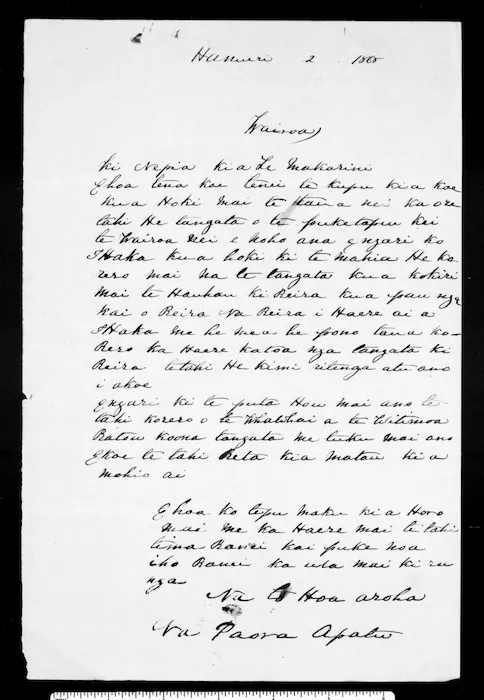 Hanueri 2 1868
Wairoa
Ki Nepia kia Te Makarini
Ehoa tena koe tenei te kupu kia koe
kua Hoki mai te taua nei ka ore
tahi He tangata o te puketapu kei
te Wairoa nei e noho ana engari ko
IHaka kua hoki ki te mahia He ko
rero mai na te tangata kua kokiri
mai te Hauhau ki Reira kua pau nga
kai o Reira Na Reira i Haere ai a
IHaka me he mea he pono taua ko-
Rero ka Haere katoa nga tangata ki
Reira tetahi He kimi ritenga atu ano
i akoe
engari ki te puta Hou mai ano te
tahi korero o te Whatihai a te Witimoa
Ratou koona tangata me tuku mai ano
Ekoe te tahi Reta kia matau kia
mohio ai
Ehoa ko tepu maku kia Horo
mai me ka Haere mai te tahi
tima Ranei kai puke noa
iho Ranei ka uta mai ki ru
nga
Na to Hoa aroha
Na Paora Apatu